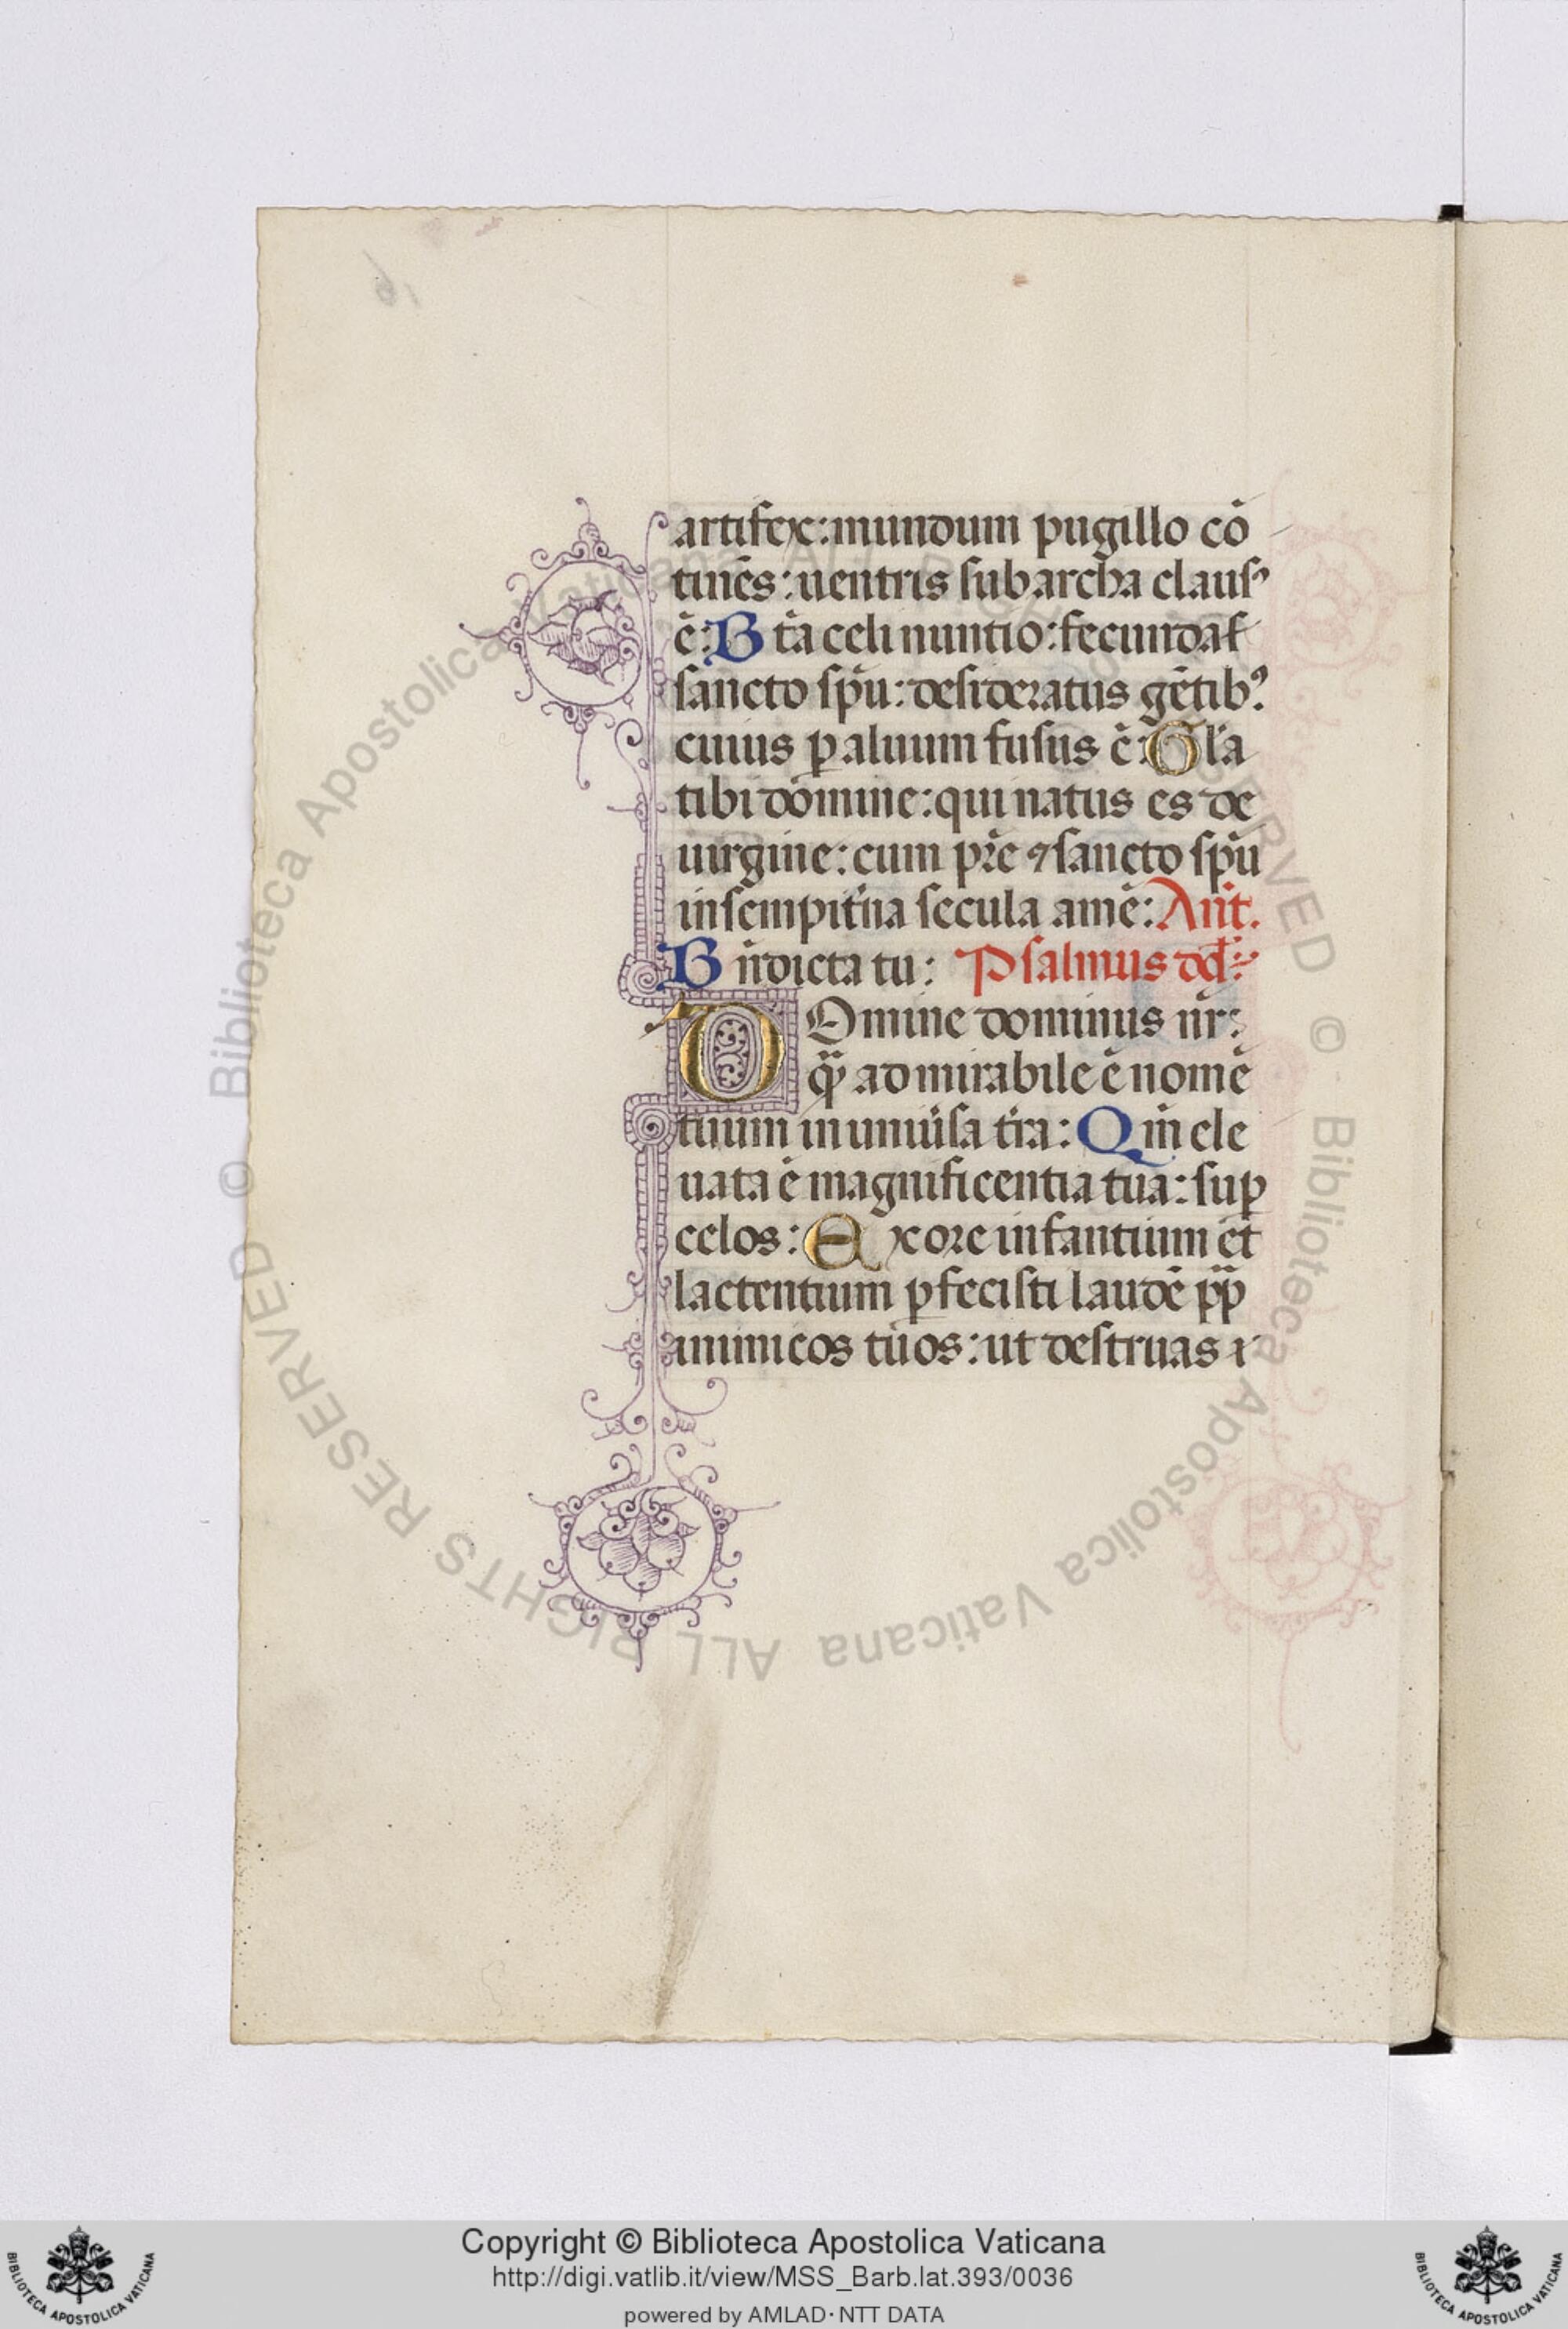 artifex: mundum pugillo cō
tinēs: uentris sub archa claus⁹
ē: B tā celi nuntio: fecundat̄
sancto sp̄u: desideratus gētib⁹
cuius ꝑ aluum fusus ē: Gl̄a
tibi domine: qui natus es de
uirgine: cum pr̄e ⁊ sancto sp̄u
in sempit̄na secula amē: Ant̄.
B n̄dicta tu: Psalmus dd̄:
DOmine dominus nr̄:
qͣ admirabile ē nomē
tuum in uniu̇sa t̄ra: Qm̄ ele
uata ē magnificentia tua: suꝑ
celos: Ex ore infantium et
lactentium ꝑfecisti laudē pp̄
inimicos tuos: ut destruas i
© Biblioteca Apostolica Vaticana ALL RIGHTS RESERVED © Biblioteca Apostolica Vaticana ALL RIGHTS RESERVED
Copyright © Biblioteca Apostolica Vaticana
http://digi.vatlib.it/view/MSS_Barb.lat.393/0036
powered by AMLAD · NTT DATA
BIBLIOTECA APOSTOLICA VATICANA
BIBLIOTECA APOSTOLICA VATICANA